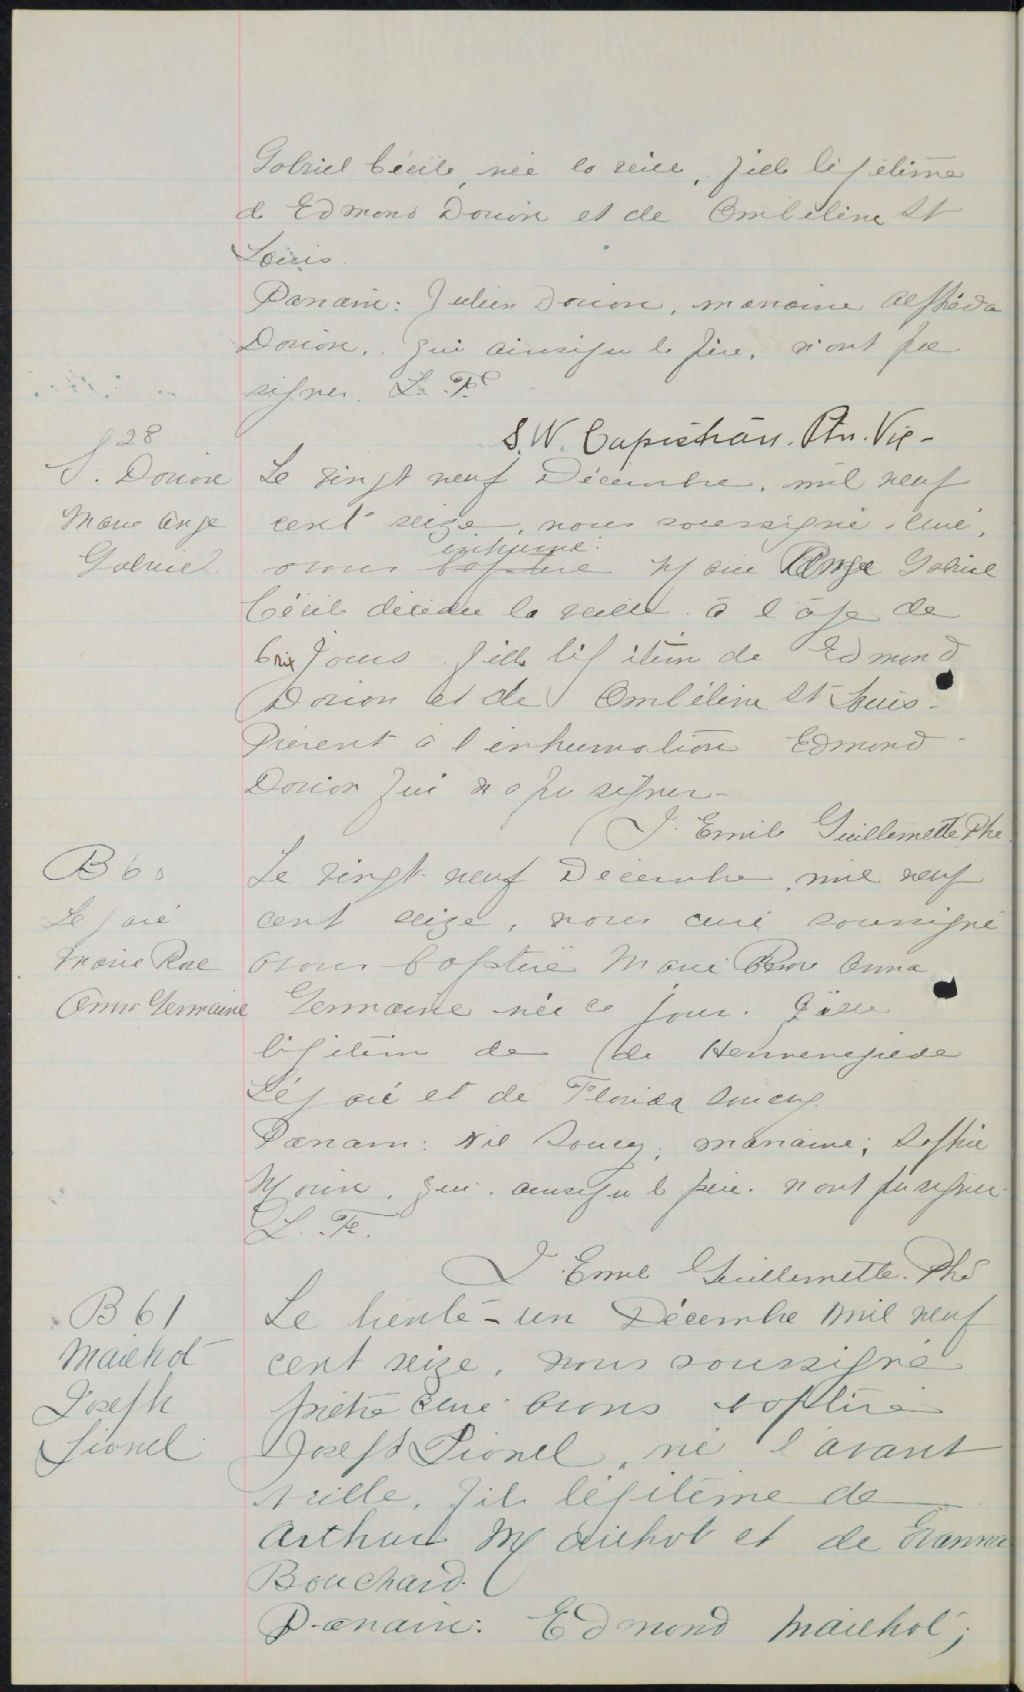 Gabriel Cécile, née la veille, fille légitime
de Edmond Dorion et de Ombéline St
Louis.
Parrain: Julien Dorion, marraine Alphéda
Dorion, qui ainsi que le père, n'ont pu
signer. L. F.
S. W. Capistran. Ptr. Vic-
S 28
S. Dorion
Marie Ange
Gabriel
Le vingt neuf Décembre, mil neuf
cent seize, nous soussigné curé,
inhumé
avons baptisé Marie Ange Gabriel
Cécile décédée la veille à l'âge de
6 six jours fille légitime de Edmond
Dorion et de Ombéline St Louis-
Présent à l'inhumation Edmond
Dorion qui n'a pu signer-
J. Emile Guillemette Ptre
B 60
Lejoie
Marie Rose
Anna Germaine
Le vingt-neuf Décembre, mil neuf
cent seize, nous curé soussigné
avons baptisé Marie Rose Anna
Germaine née ce jour. fille
légitime de de Hermenegilde
Lejoie et de Florida Soucy.
Parrain: Nil Soucy; marraine; Sophie
Morin, qui ainsi que le père n'ont pu signer-
L. F.
J. Emile Guillemette. Ptre
B 61
Mailhot
Joseph
Lionel
Le trente-un Décembre mil neuf
cent seize, nous soussigné
prêtre curé avons baptisé
Joseph Lionel, né l'avant
veille, fils légitime de
Arthur Mailhot et de
Bouchard.
Parrain: Edmond Mailhot;